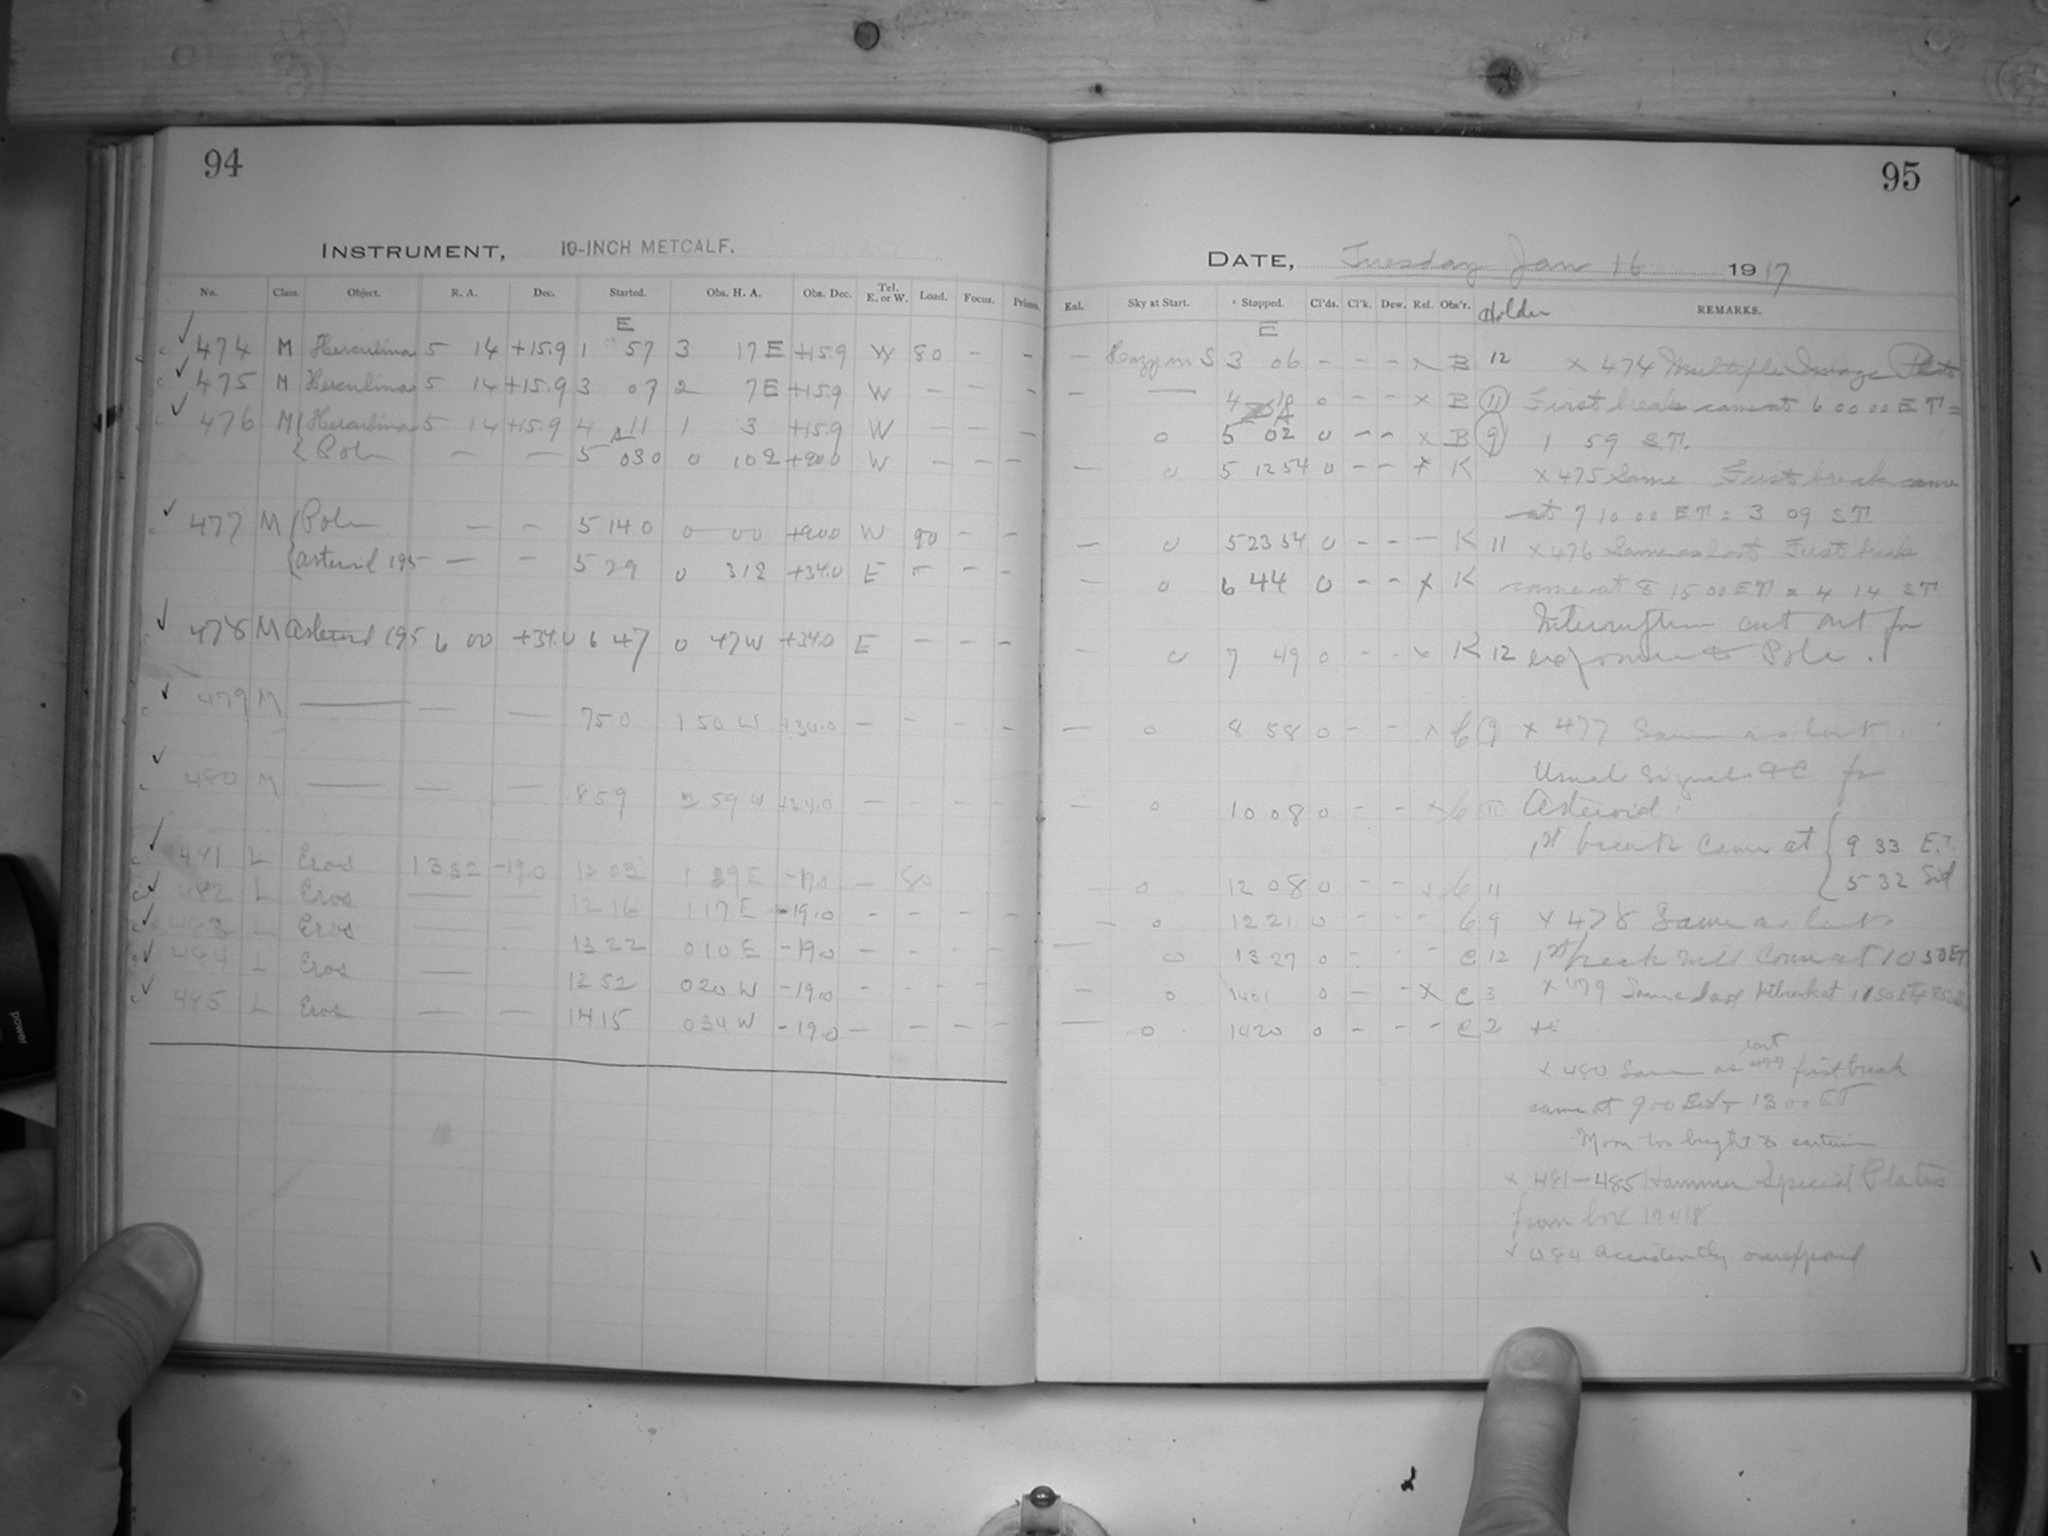 94
INSTRUMENT, 10-INCH METCALF.
No. Class. Object. R. A. Dec. Started. Obs. H. A. Obs. Dec. Tel. E. or W. Load. Focus. Prism.
E
474 M Herculina 5 14 +15.9 1 57 3 17 E +15.9 W 80 - -
475 M Herculina 5 14 +15.9 3 07 2 7 E +15.9 W - - -
476 M Herculina 5 14 +15.9 4 11 1 3 +15.9 W - - -
Pole - - 5 03 0 0 10 2 +90.0 W - - -
477 M Pole - - 5 14 0 0 00 +90.0 W 80 - -
Asteroid 195 - - 5 29 0 31 E - -
478 M Asteroid 195 6 00 +34.0 6 47 0 47 W +34.0 E - - -
479 M — — — 7 50 1 50 W +34.0 - - - -
480 M — — — 8 59 2 59 W +34.0 - - - -
481 L Eros 13 32 -19.0 12 03 1 29 E -19.0 - 80
482 L Eros — — 12 16 1 17 E -19.0 - - - -
483 L Eros — — 13 22 0 10 E -19.0 - - - -
484 L Eros — 12 52 0 20 W -19.0 - - - -
485 L Eros — — 14 15 0 34 W -19.0 - - - -
95
DATE, Tuesday Jan 16 1917
Enl. Sky at Start. Stopped. Cl'ds. Cl'k. Dew. Ref. Obs'r. Holder REMARKS.
E
- Hazy m S 3 06 - - - x B 12 x 474 Multiple Image Plate
- — 4 10 0 - - x B 11 First break came at 6 00 00 E T =
0 5 02 0 - - x B 9 1 59 S.T.
- 0 5 12 54 0 - - x K x 475 Same First break came
at 7 10 00 E T = 3 09 S.T.
- 0 5 23 54 0 - - - K 11 x 476 Same as last First break
- 0 6 44 0 - - x K came at 8 15 00 E T = 4 14 S T
Interruption cut out for
- 0 7 49 0 - - x K 12 exposure to Pole.
- 0 8 58 0 - - x C 9 x 477 Same as last.
Usual signals &c for
- 0 10 08 0 - - x C 11 Asteroid.
1st break came at { 9 33 E.T.
{ 5 32 Sid
- 0 12 08 0 - - x C 11
- 0 12 21 0 - - - C 9 x 478 Same as last
— 0 13 27 0 - - - C 12 1st break will come at 10 30 ET
- 0 14 01 0 - - x C 3 x 479 Same as last 1st break at 11 50 ET
— 0 14 20 0 - - - C 2
x 480 Same as last first break
came at 9 00 Sid + 13 00 ET
Moon too bright to continue
x 481-485 Hammer Special Plates
from box 12418
x 484 accidently overexposed
power